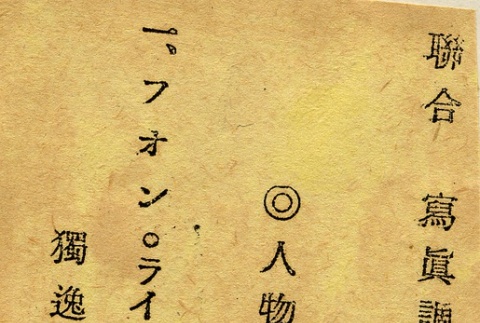 聯合 寫眞調
◎人物
一。フオン。ライ
獨逸